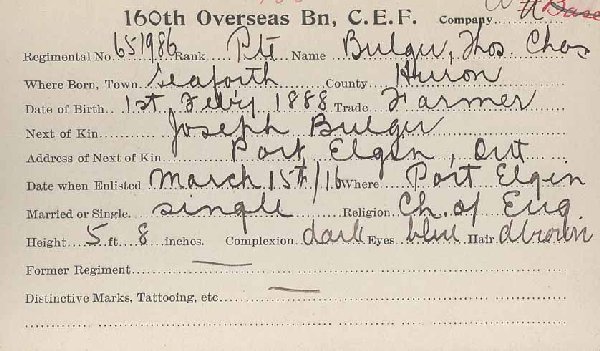 160th Overseas Bn, C.E.F. Company A Base
Regimental No. 651986 Rank Pte Name Bulger, Thos. Chas
Where Born, Town Seaforth County Huron
Date of Birth 1st Feby 1888 Trade Farmer
Next of Kin Joseph Bulger
Address of Next of Kin Port Elgin, Ont
Date when Enlisted March 15th/16 Where Port Elgin
Married or Single single Religion Ch. of Eng.
Height 5 ft. 8 inches. Complexion dark Eyes blue Hair dbrown
Former Regiment —
Distinctive Marks, Tattooing, etc. —